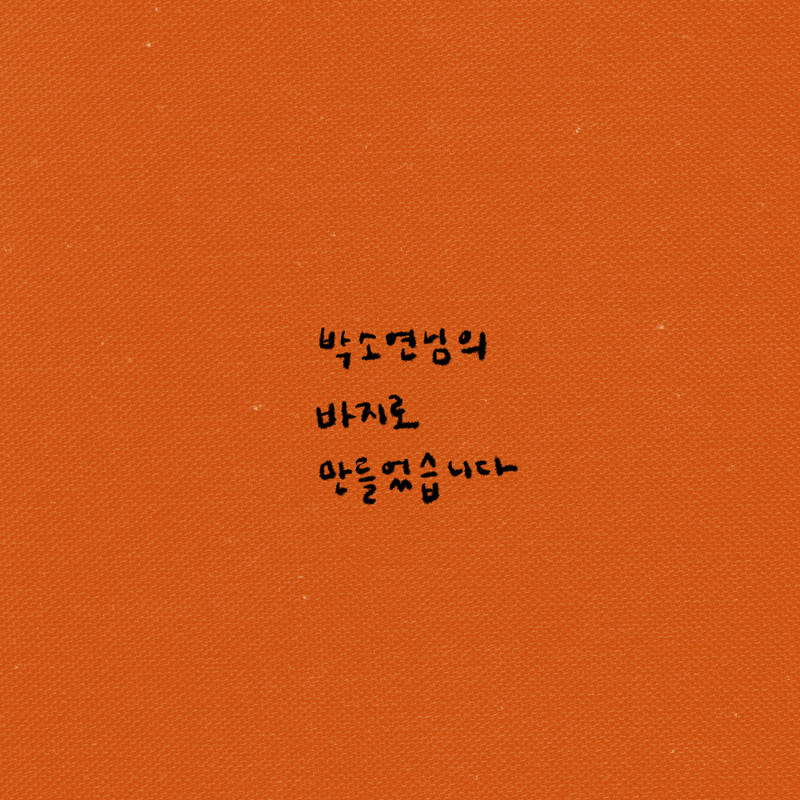 박소연님의
바지로
만들었습니다